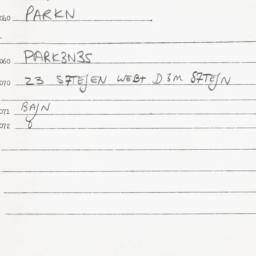 040 PARKN
060 PARK3N3S
070 23 S7TEJEN WEBT D3M S7TEJN
071 BAJN
072